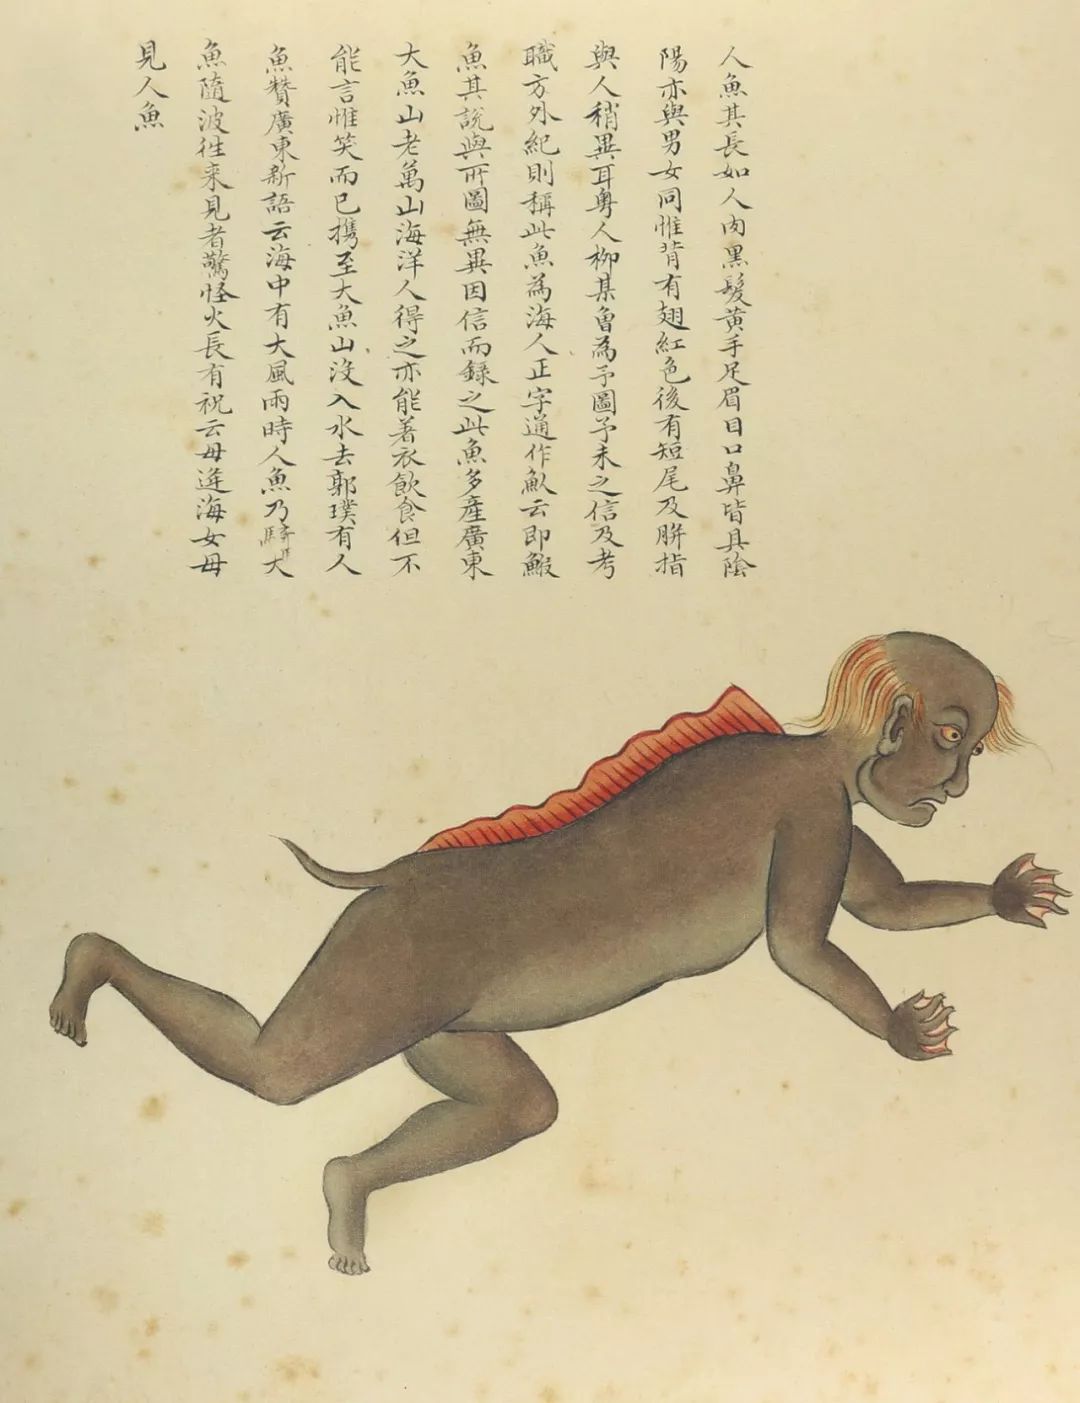 人魚其長如人肉黑髮黃手足眉目口鼻皆具陰
陽亦與男女同惟背有翅紅色後有短尾及駢指
與人稍異耳粵人柳某曾為予圖予未之信及考
職方外紀則稱此魚為海人正字通作魜云即鰕
魚其説與所圖無異因信而録之此魚多產廣東
大魚山老萬山海洋人得之亦能著衣飲食但不
能言惟笑而已携至大魚山沒入水去郭璞有人
魚贊廣東新語云海中有大風雨時人魚乃騎大
魚隨波徃来見者驚怪火長有祝云毋逢海女毋
見人魚